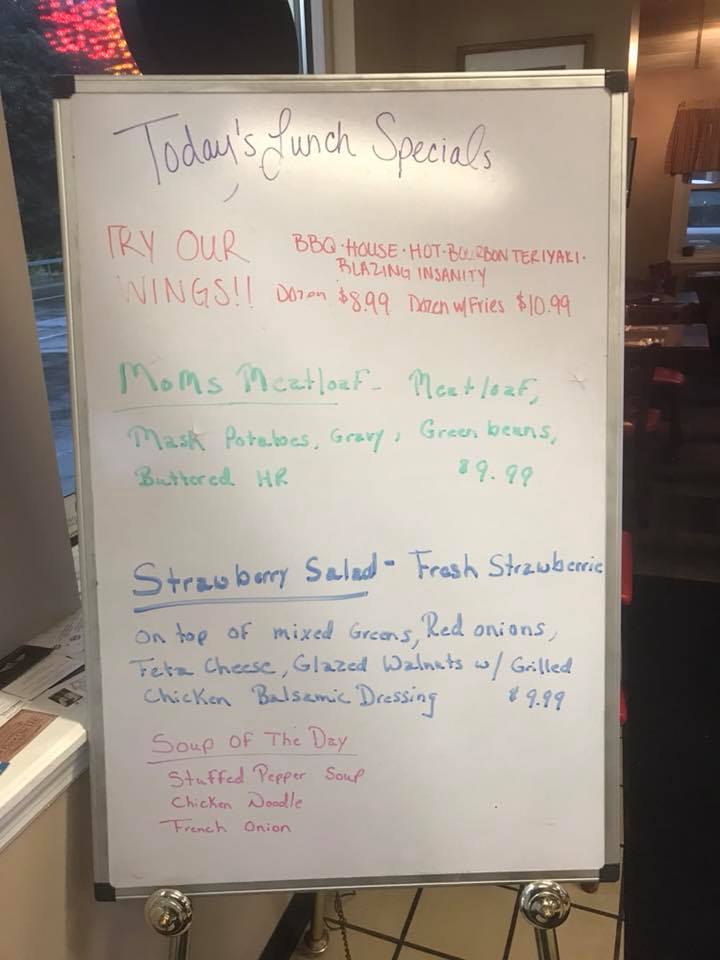 Today's Lunch Specials
TRY OUR
WINGS!!
BBQ·HOUSE·HOT·BOURBON TERIYAKI·
BLAZING INSANITY
Dozen $8.99 Dozen w/Fries $10.99
Moms Meatloaf- Meatloaf,
Mask Potatoes, Gravy, Green beans,
Buttered HR $9.99
Strawberry Salad- Fresh Strawberrie
on top of mixed Greens, Red onions,
Feta Cheese, Glazed Walnuts w/ Grilled
Chicken Balsamic Dressing $9.99
Soup Of The Day
Stuffed Pepper Soup
Chicken Noodle
French Onion